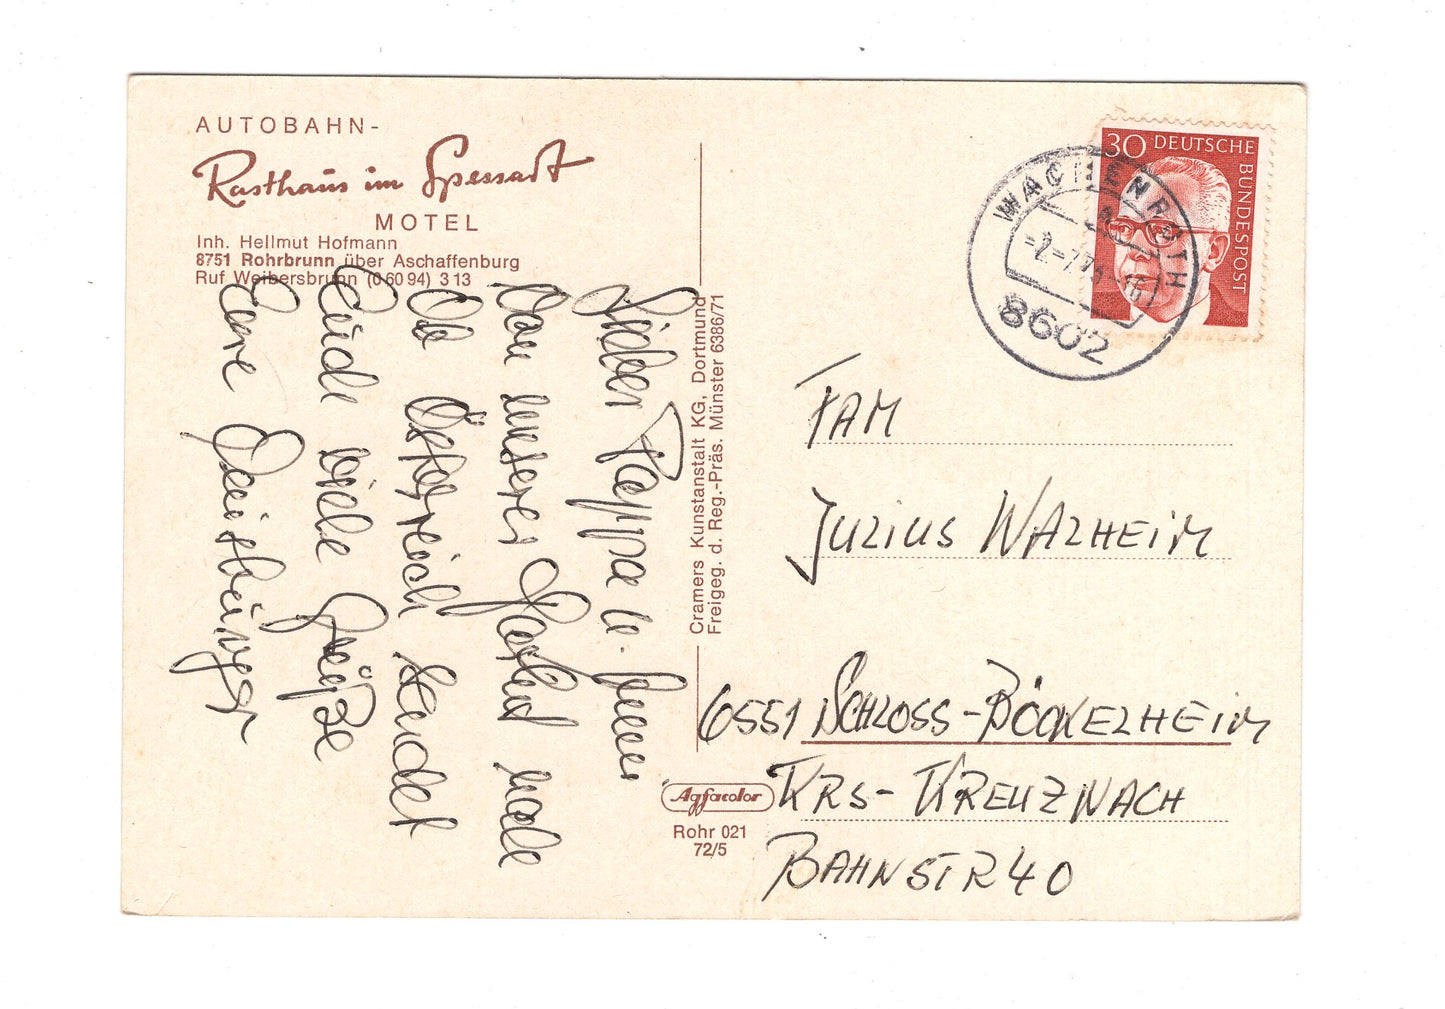 AUTOBAHN-
Rasthaus im Spessart
MOTEL
Inh. Hellmut Hofmann
8751 Rohrbrunn über Aschaffenburg
Ruf Weibersbrunn (0 60 94) 3 13
Lieber Pappa u.
Von unserer nach
Österreich sendet
Euch viele Grüße
Eure
Cramers Kunstanstalt KG, Dortmund
Freigeg. d. Reg.-Präs. Münster 6386/71
Agfacolor
Rohr 021
72/5
30 DEUTSCHE
BUNDESPOST
WACHENROTH
8602
FAM
JULIUS WALHEIM
6551 SCHLOSS-BÖCKELHEIM
KRS-KREUZNACH
BAHNSTR 40